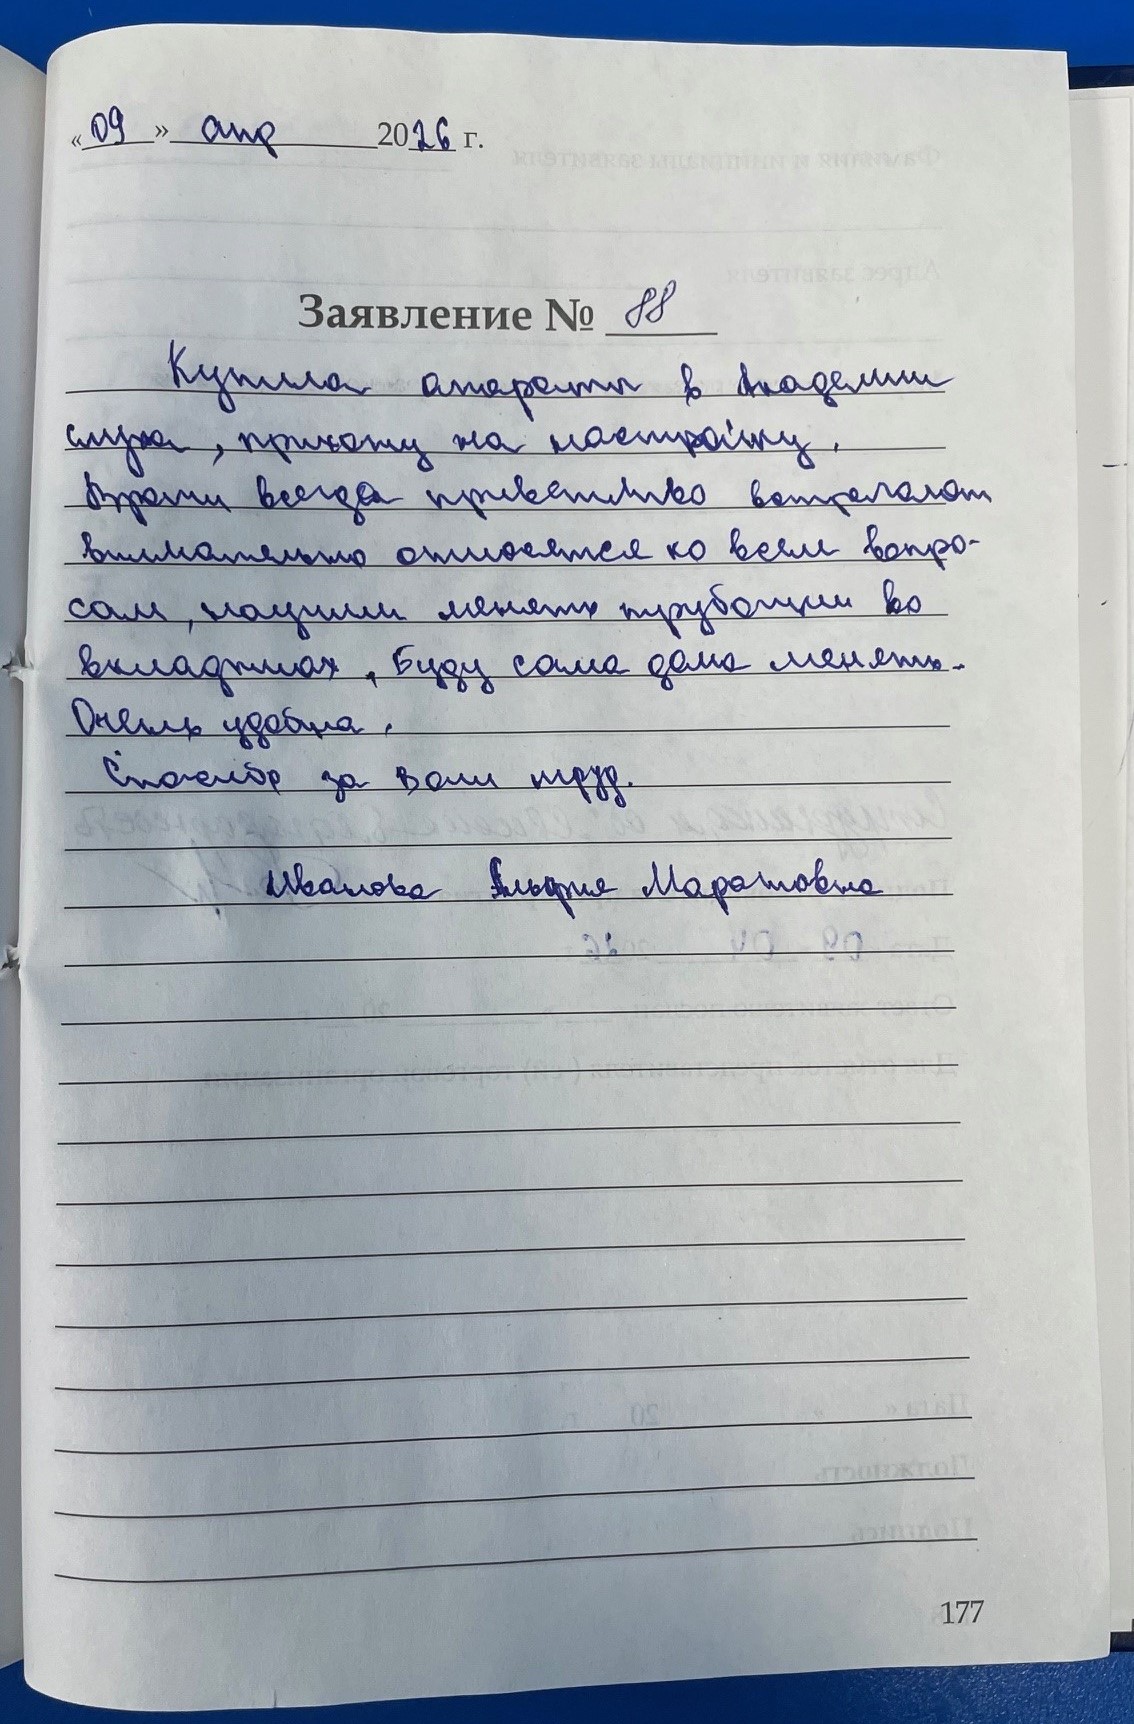 « 09 » апр 2026 г.
Заявление № 88
Купила апараты в Академии
слуха, прихожу на настройку.
Врачи всегда приветливо встречают
внимательно относятся ко всем вопро-
сам, научили менять трубочки во
вкладышах, Буду сама дома менять.
Очень удобна.
Спасибо за Ваш труд.
Иванова Маратовна
177